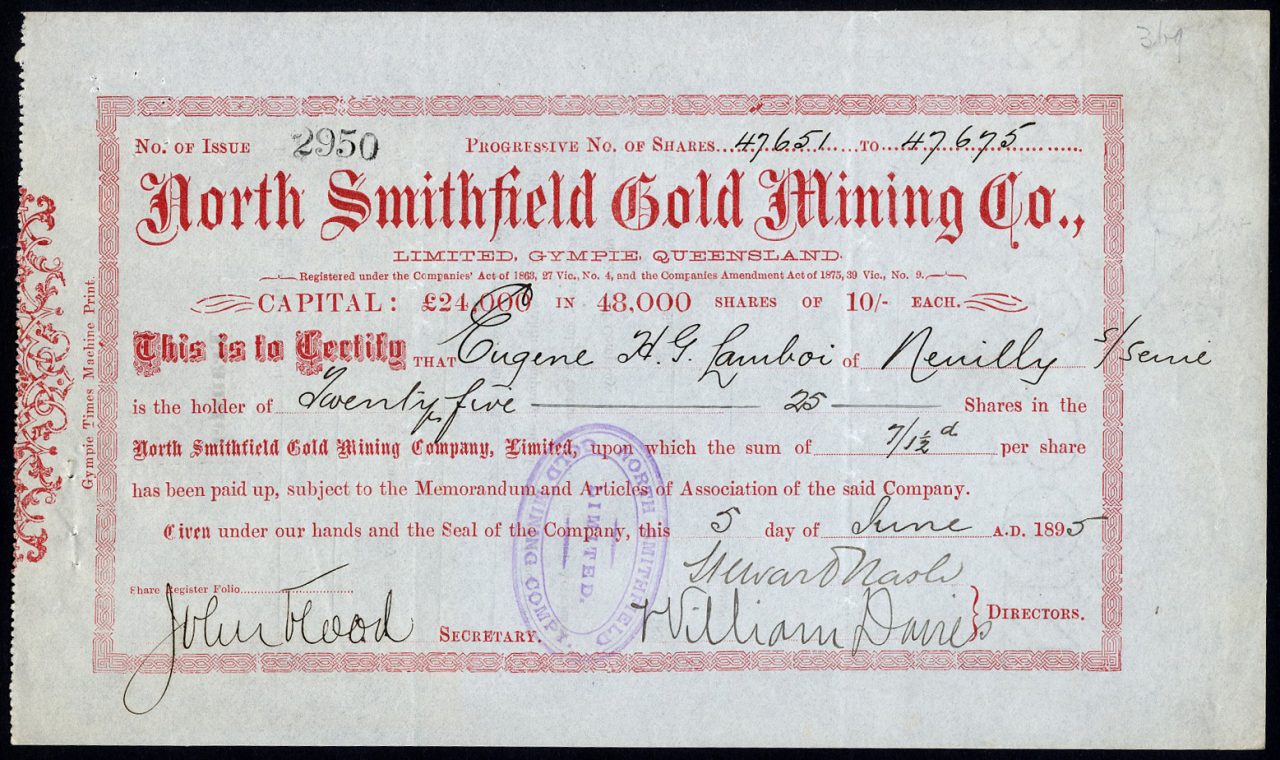 3/19
No. of Issue 2950 Progressive No. of Shares...47651...to...47675...
North Smithfield Gold Mining Co.,
LIMITED, GYMPIE, QUEENSLAND.
Registered under the Companies' Act of 1863, 27 Vic., No. 4, and the Companies Amendment Act of 1875, 39 Vic., No. 9.
CAPITAL: £24,000 IN 48,000 SHARES OF 10/- EACH.
This is to Certify THAT Eugene H. G. Lamboi of Neuilly s/seine
is the holder of Twenty five 25 Shares in the
North Smithfield Gold Mining Company, Limited, upon which the sum of 7/1½d per share
has been paid up, subject to the Memorandum and Articles of Association of the said Company.
Given under our hands and the Seal of the Company, this 5 day of June A.D. 1895
Stewart Nash
Share Register Folio
John Flood Secretary. William Davies Directors.
NORTH SMITHFIELD GOLD MINING COMPY. LIMITED.
Gympie Times Machine Print.